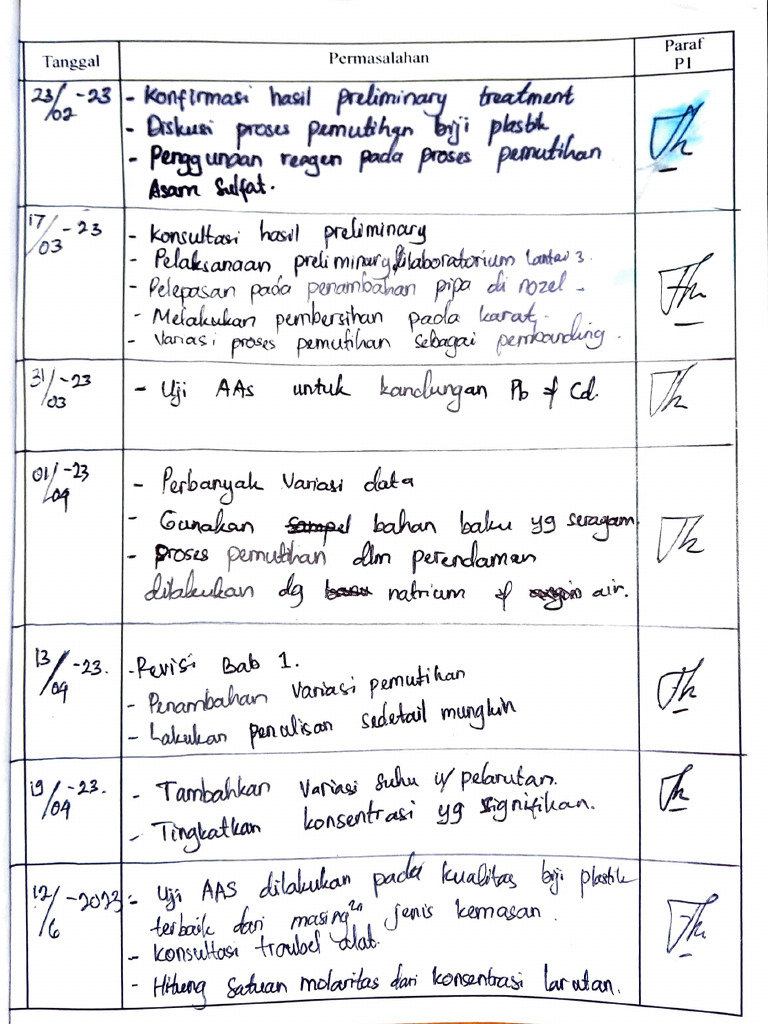 Tanggal
Permasalahan
Paraf
P1
23/02 -23
- Konfirmasi hasil preliminary treatment
- Diskusi proses pemutihan biji plastik
- Penggunaan reagen pada proses pemutihan
Asam Sulfat.
17/03 -23
- Konsultasi hasil preliminary
- Pelaksanaan preliminary dilaboratorium Lantai 3.
- Pelepasan pada penambahan pipa di nozel -
- Melakukan pembersihan pada karat.
- Variasi proses pemutihan sebagai pembanding.
31/03 -23
- Uji AAs untuk kandungan Pb & Cd.
01/04 -23
- Perbanyak Variasi data
- Gunakan sampel bahan baku yg seragam
- Proses pemutihan dlm perendaman
dilakukan dg natrium & air.
13/04 -23.
- Revisi Bab 1.
- Penambahan variasi pemutihan
- Lakukan penulisan sedetail mungkin
19/04 -23.
- Tambahkan Variasi suhu u/ pelarutan.
- Tingkatkan konsentrasi yg signifikan.
12/6 -2023
- Uji AAS dilakukan pada kualitas biji plastik
terbaik dari masing2n jenis kemasan.
- Konsultasi troubel alat.
- Hitung satuan molaritas dari konsentrasi larutan.